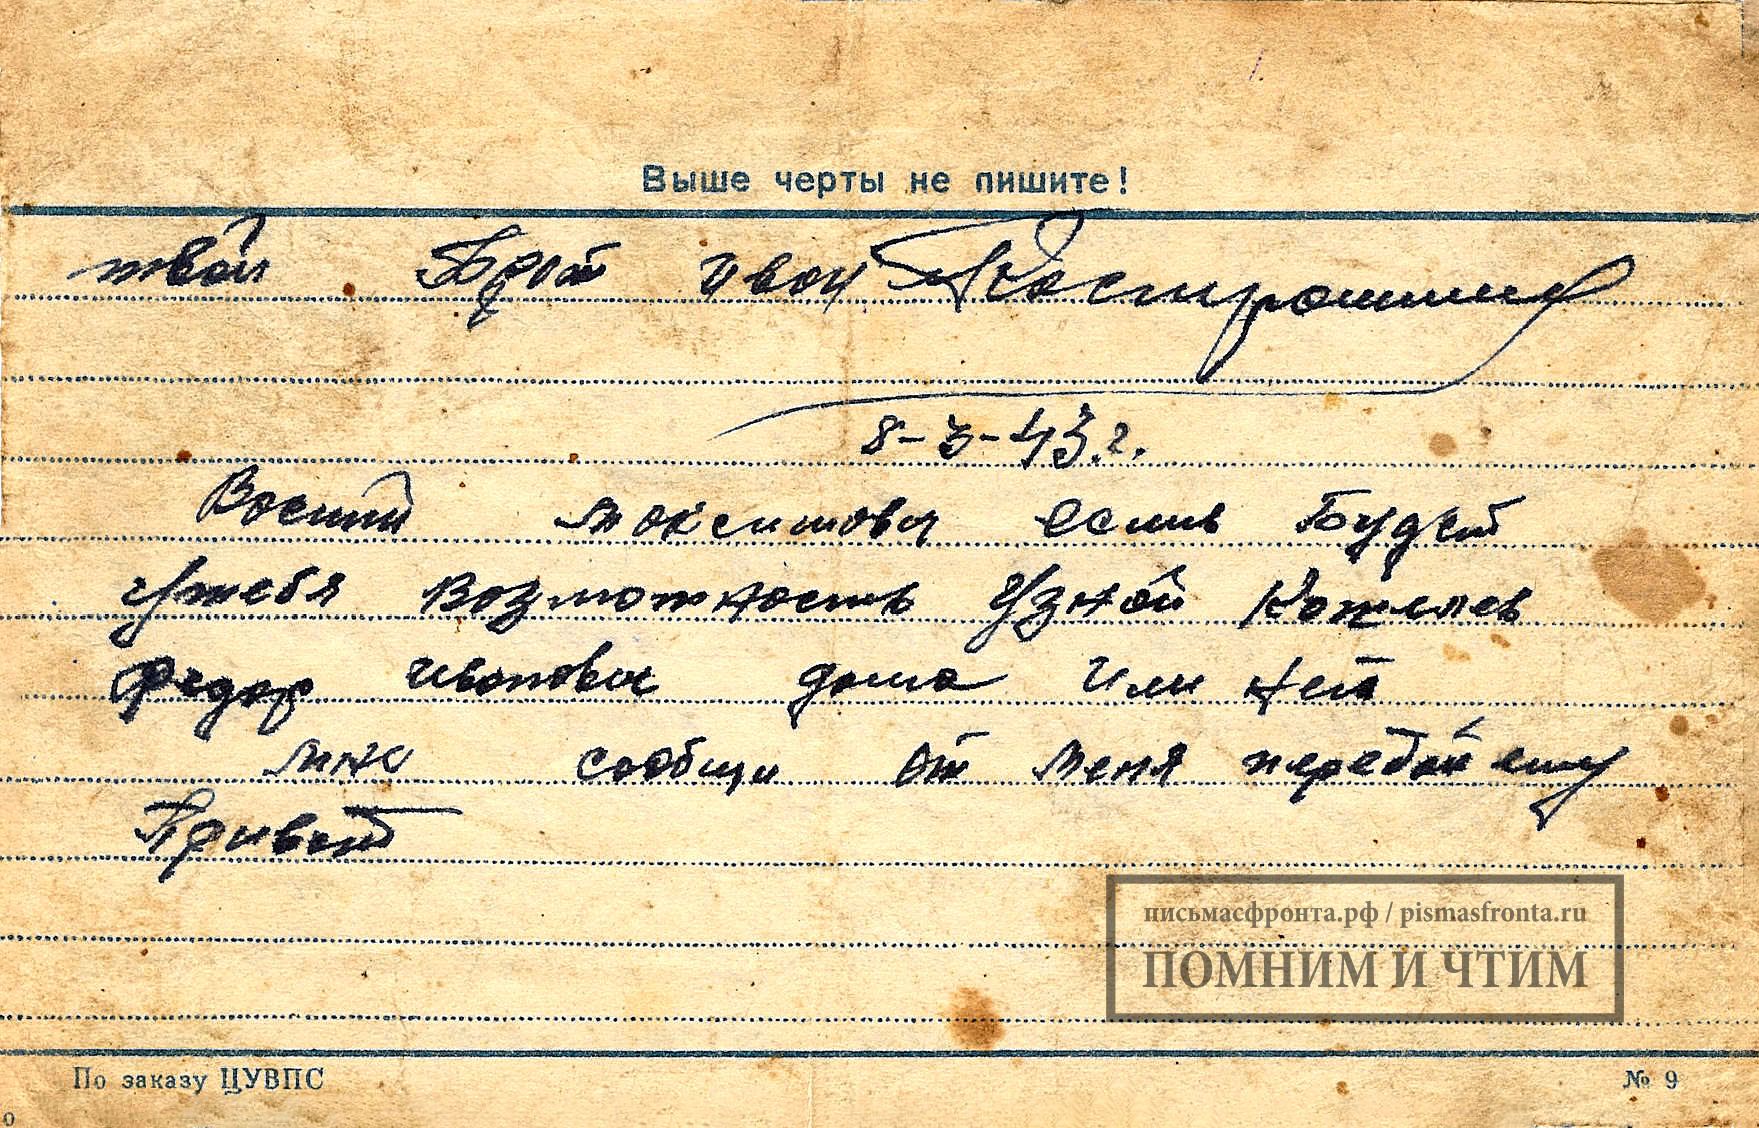 Выше черты не пишите!
твой Брат Иван Кострошин
8-3-43.г.
Васили Максимови если Будет
у тебя Возможность Узнай
федор иванови дома или нет
мне сообщи от меня передай ему
Привет
письмасфронта.рф / pismasfronta.ru
ПОМНИМ И ЧТИМ
По заказу ЦУВПС
№ 9